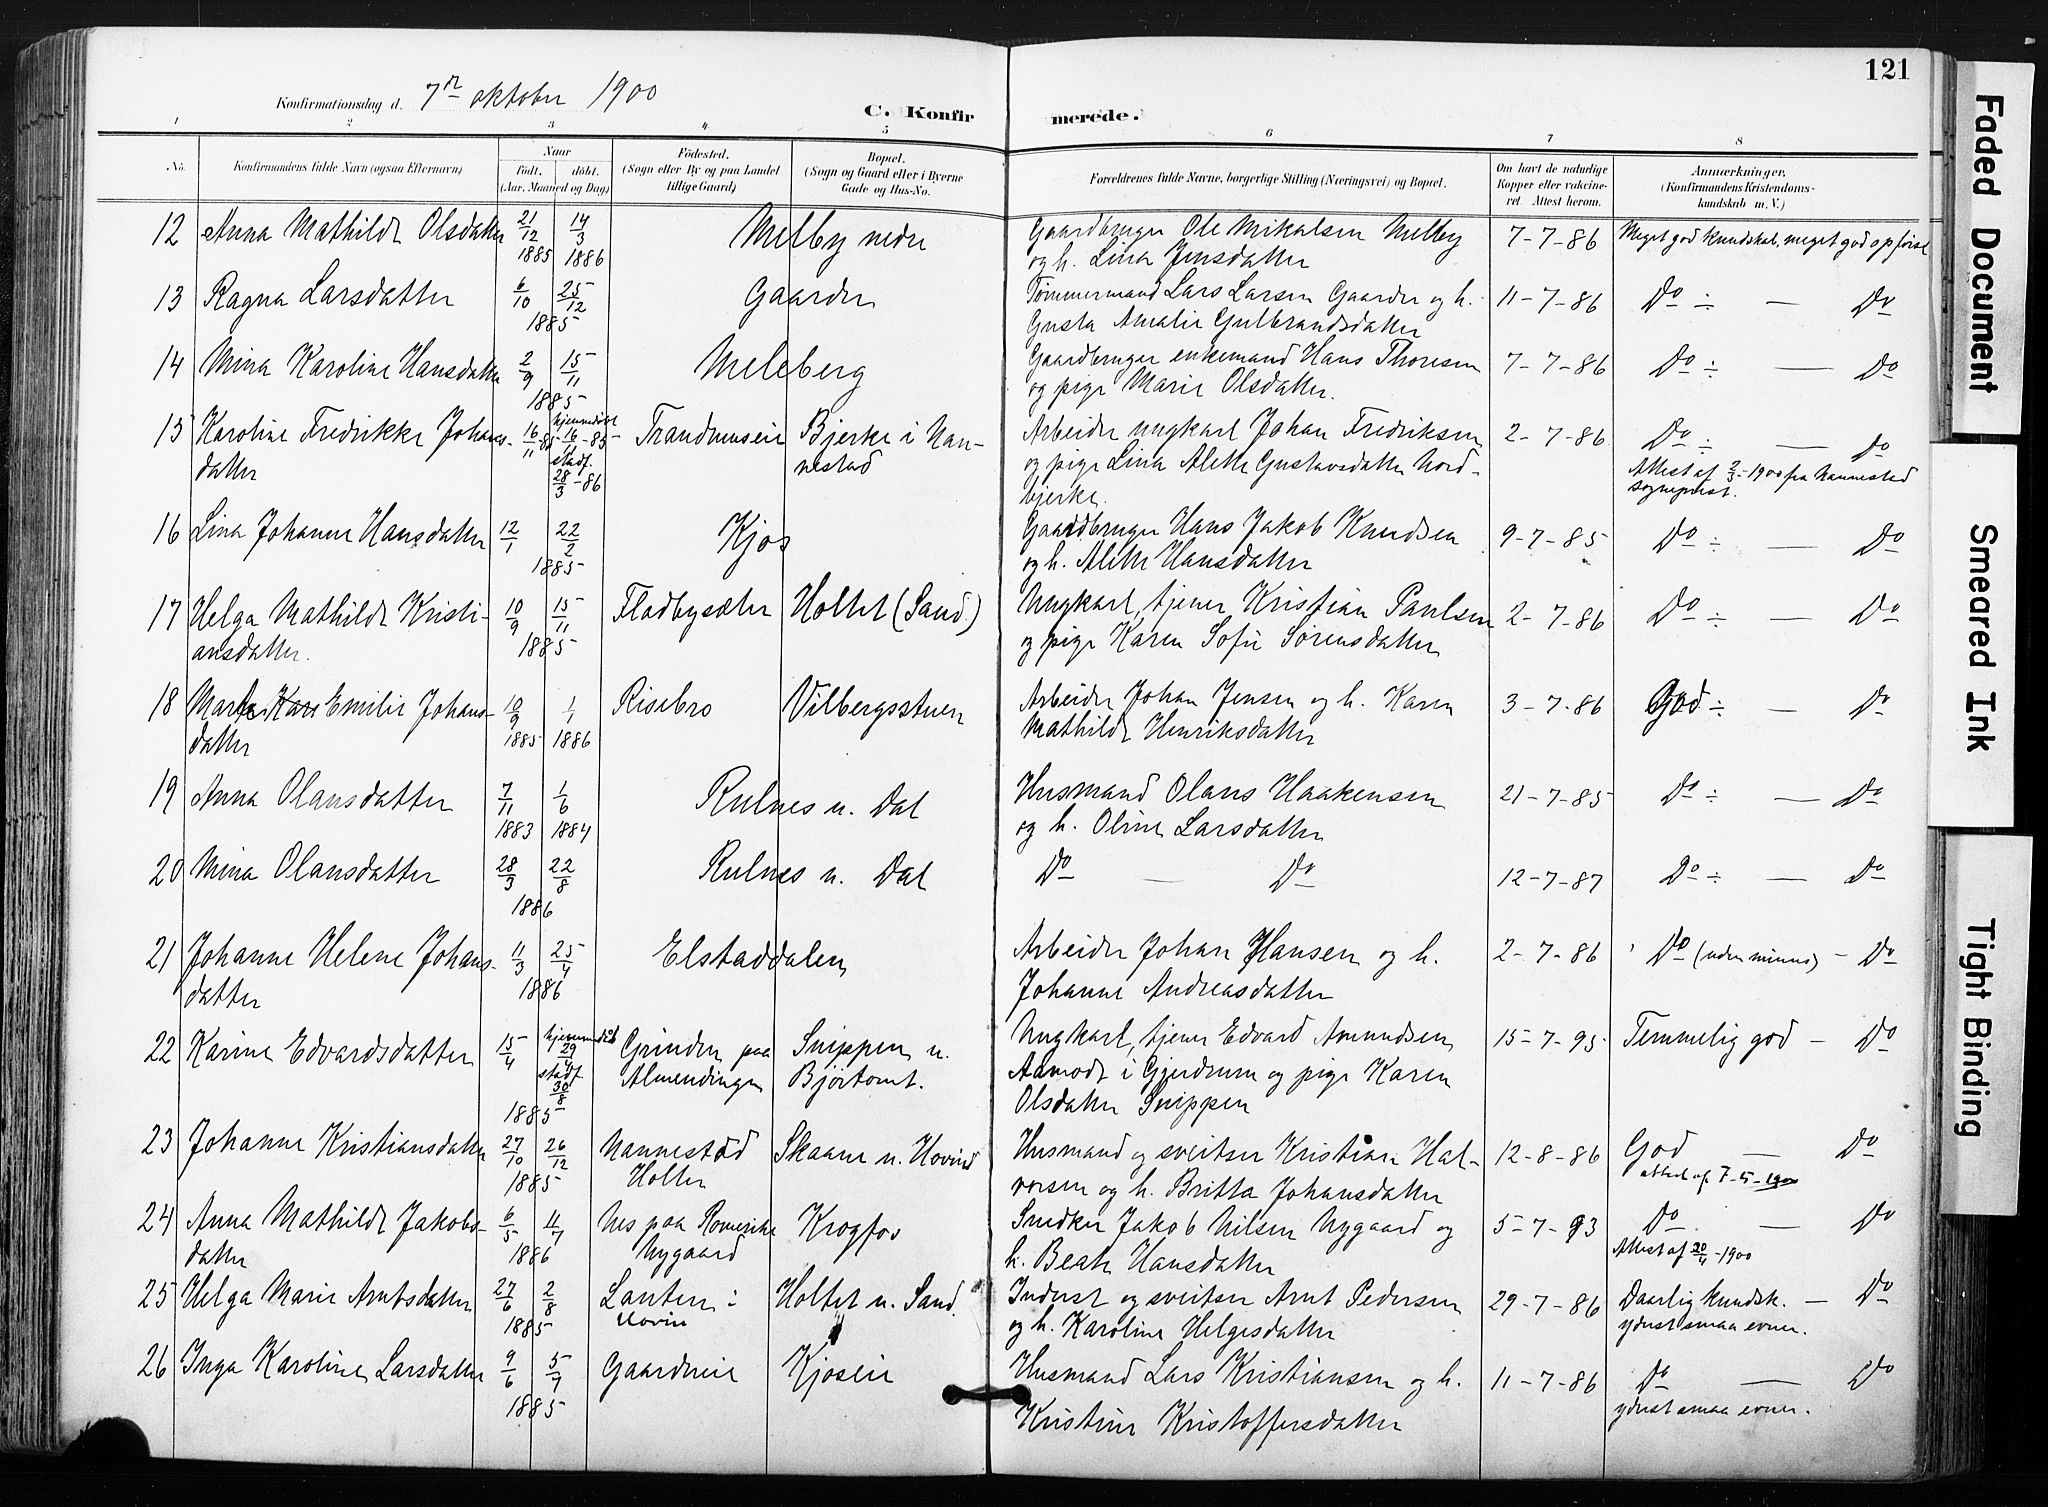 121
Konfirmationsdag d. 7de oktober 1900
C. Konfirmerede.
1 2 3 4 5 6 7 8
No. Konfirmandens fulde Navn (ogsaa Efternavn) Naar födt. döbt. (Aar, Maaned og Dag) Födested. (Sogn eller By og paa Landet tillige Gaard) Bopæl. (Sogn og Gaard eller i Byerne Gade og Hus-No. Forældrenes fulde Navne, borgerlige Stilling (Næringsvei) og Bopæl. Om havt de naturlige Kopper eller vakcineret. Attest herom. Anmærkninger. (Konfirmandens Kristendomskundskab m. V.)
12 Anna Mathilde Olsdatter 21/12 1885 14/3 1886 Melby nedre Gaardbruger Ole Mikalsen Melby 7-7-86 Meget god kundskab, meget god opførsel
og h. Lina Jensdatter
13 Ragna Larsdatter 6/10 25/12 1885 Gaarder Tømmermand Lars Larsen Gaarder og h. 11-7-86 Do ÷ — Do
Gusta Amalie Gulbrandsdatter
14 Mina Karoline Hansdatter 2/9 15/11 1885 Meleberg Gaardbruger enkemand Hans Thoresen 7-7-86 Do ÷ — Do
og pige Marie Olsdatter.
15 Karoline Fredrikke Johans- 16/11-85 hjemmedøbt 16/11-85 Trandumseie Bjerke i Nan- Arbeider ungkarl Johan Fredriksen 2-7-86 Do ÷ — Do
datter stadf. 28/3-86 nestad og pige Lina Alette Gustavsdatter Nord- Attest af 2/3-1900 fra Nannestad
bjerke. sogneprest.
16 Lina Johanne Hansdatter 12/1 22/2 1885 Kjos Gaardbruger Hans Jakob Knudsen 9-7-85 Do ÷ — Do
og h. Alette Hansdatter
17 Helga Mathilde Kristi- 10/9 15/11 1885 Fladbysæter Holtet (Sand.) Ungkarl, tjener Kristian Paulsen 2-7-86 Do ÷ — Do
ansdatter. og pige Karen Sofie Sørensdatter
18 Marte Emilie Johans- 10/9 1885 1/1 1886 Risebro Vilbergsstuen Arbeider Johan Jensen og h. Karen 3-7-86 God ÷ — Do
datter Mathilde Henriksdatter
19 Anna Olausdatter 7/11 1883 1/6 1884 Rulnes u. Dal Husmand Olaus Haakensen 21-7-85 Do ÷ — Do
og h. Oline Larsdatter
20 Mina Olausdatter 28/3 22/8 1886 Rulnes u. Dal Do — Do 12-7-87 Do ÷ — Do
21 Johanne Helene Johans- 11/3 25/4 1886 Elstaddalen Arbeider Johan Hansen og h. 2-7-86 Do (uden minus) - Do
datter Johanne Andreasdatter
22 Karine Edvardsdatter 15/4 hjemmedøbt 29/4 Grinden paa Snippen u. Ungkarl, tjener Edvard Amundsen 15-7-95 Temmelig god - Do
stadf 30/8 1885 Almendingen Bjørtomt. Aamodt i Gjerdrum og pige Karen
Olsdatter Snippen
23 Johanne Kristiansdatter 27/10 26/12 1885 Nannestad Skaane u. Hovind Husmand og sveitser Kristian Hal- 12-8-86 God — Do
Holter vorsen og h. Britta Johansdatter attest af 7-5-1900
24 Anna Mathilde Jakobs- 6/5 11/7 1886 Nes paa Romerike Krogfos Snedker Jakob Nilsen Nygaard og 5-7-93 Do — Do
datter Nygaard h. Beate Hansdatter Attest af 20/4-1900
25 Helga Marie Arntsdatter 27/6 2/8 1885 Lauten i Holtet u. Sand. Inderst og sveitser Arnt Pedersen 29-7-86 Daarlig kundsk. — Do
Hovin og h. Karoline Helgesdatter yderst smaa evner.
26 Inga Karoline Larsdatter 9/6 5/7 1885 Gaardveie Kjoseie Husmand Lars Kristiansen og h. 11-7-86 Do — Do
Kristine Kristoffersdatter yderst smaa evner.
Faded Document
Smeared Ink
Tight Binding